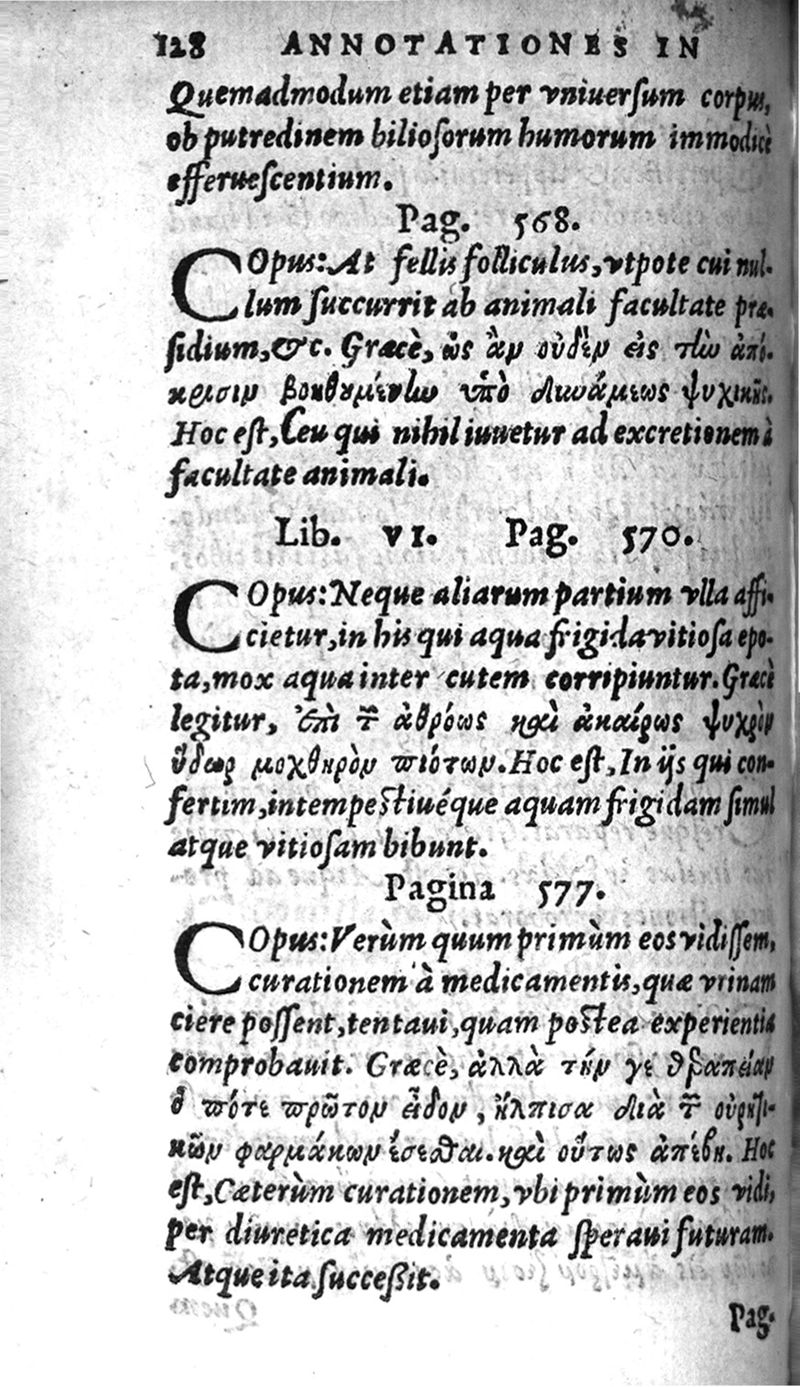 128 ANNOTATIONES IN
Quemadmodum etiam per vniuersum corpus,
ob putredinem biliosorum humorum immodicè
efferuescentium.
Pag. 568.
COpus: At fellis folliculus, vtpote cui nul-
lum succurrit ab animali facultate præ-
sidium, &c. Græcè, ὡς ἂν οὐδὲν εἰς τὴν ἀπό-
κρισιν βοηθουμένην ὑπὸ δυνάμεως ψυχικῆς.
Hoc est, Ceu qui nihil iuuetur ad excretionem à
facultate animali.
Lib. VI. Pag. 570.
COpus: Neque aliarum partium vlla affi-
cietur, in his qui aqua frigida vitiosa epo-
ta, mox aqua inter cutem corripiuntur. Græcè
legitur, ἐπὶ τῶν ἀθρόως καὶ ἀκαίρως ψυχρὸν
ὕδωρ μοχθηρὸν πιότων. Hoc est, In ijs qui con-
fertim, intempestiuéque aquam frigidam simul
atque vitiosam bibunt.
Pagina 577.
COpus: Verùm quum primùm eos vidissem,
curationem à medicamentis, quæ vrinam
ciere possent, tentaui, quam postea experientia
comprobauit. Græcè, ἀλλὰ τήν γε θεραπείαν
ὅ πότε πρῶτον εἶδον, ἤλπισα διὰ τῶν οὐρητι-
κῶν φαρμάκων ἔσεσθαι. καὶ οὕτως ἀπέβη. Hoc
est, Cæterùm curationem, vbi primùm eos vidi,
per diuretica medicamenta speraui futuram.
Atque ita successit.
Pag.